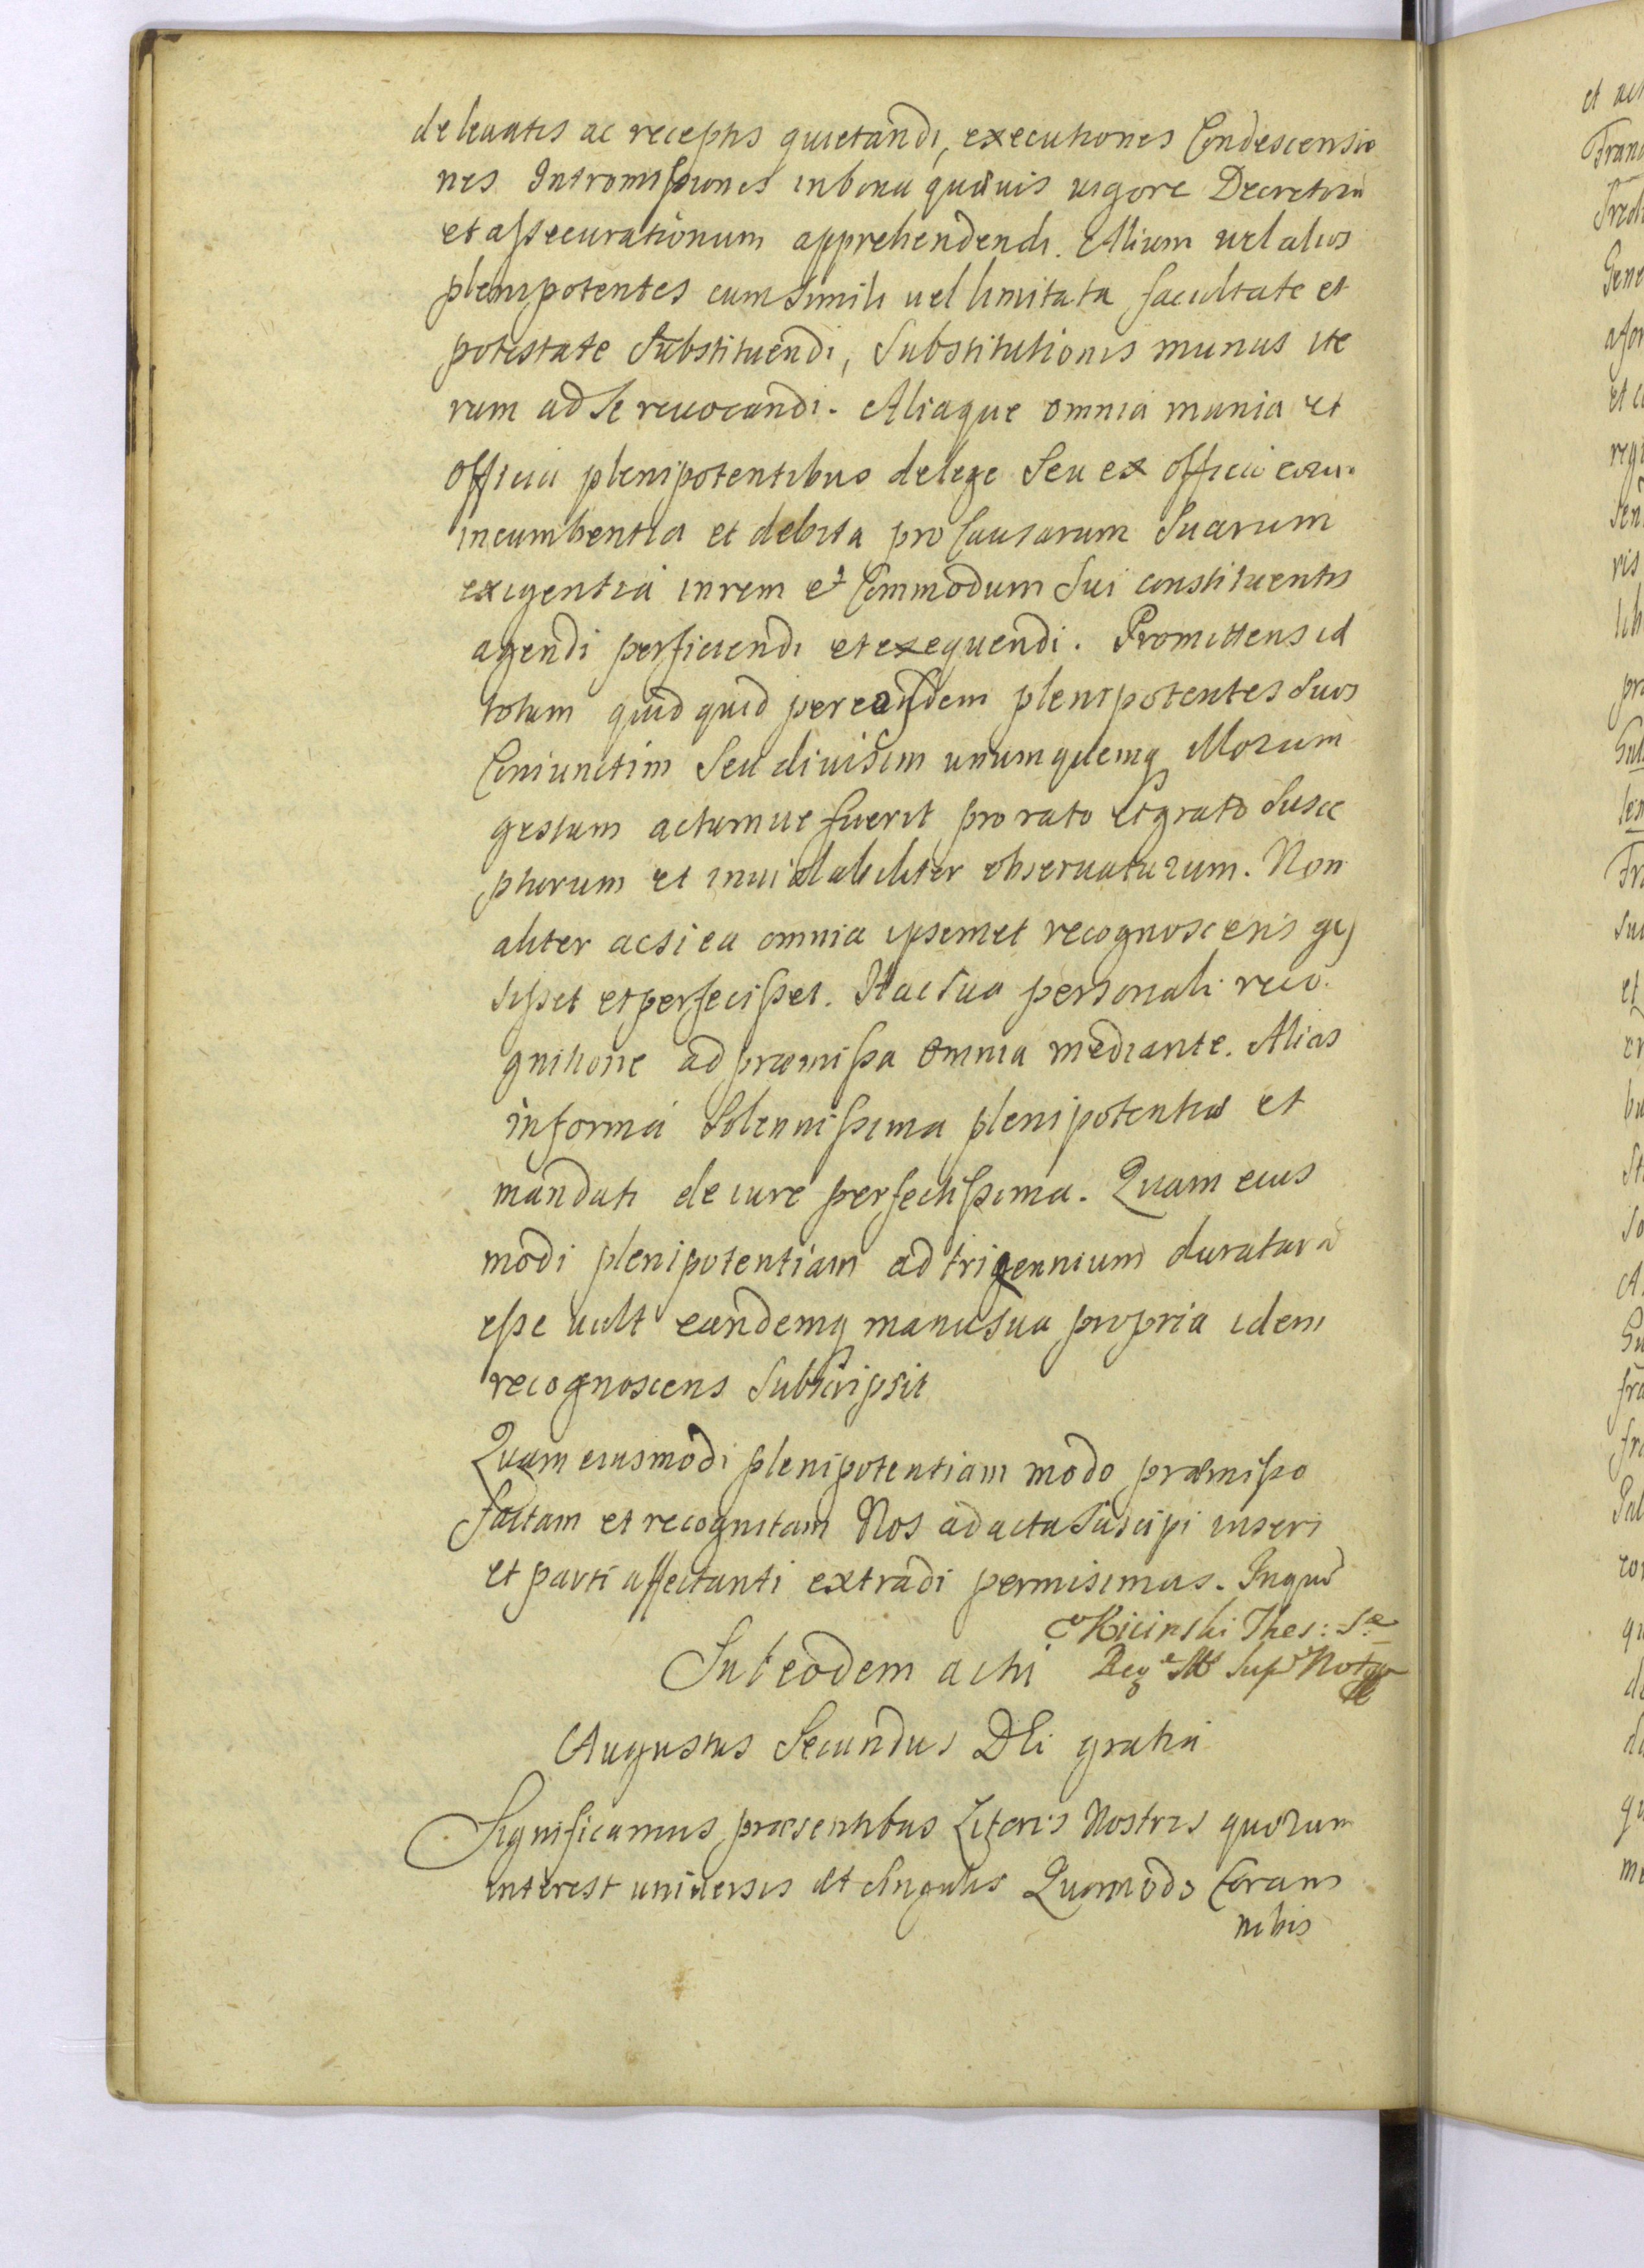 de levatis ac receptis quietandi, executiones Condescensio
nes Intromissiones in bona quaevis vigore Decretorū
et assecurationum apprehendendi. Alium vel alios
plenipotentes cum simili vel limitata facultate et
potestate Substituendi, Substitutionis munus ite
rum ad se revocandi. Aliaque omnia munia et
officia plenipotentibus de lege Seu ex officii eoru.
incumbentia et debita pro Causarum Suarum
exigentia in rem et Commodum Sui constituentis
agendi perficiendi et exequendi. Promittens id
totum quid quid per eosdem plenipotentes Suos
Coniunctim Seu divisim unumquemq Illorum
gestum actumve fuerit pro rato et grato Susce
pturum et inviolabiliter observaturum. Non
aliter ac si ea omnia ipsemet recognoscens ges
sisset et perfecisset. Hac Sua personali reco
gnitione ad praemissa omnia mediante. Alias
in forma Solennissima plenipotentiae et
mandati de iure perfectissima. Quam eius
modi plenipotentiam ad trigennium duraturā
esse vult eandemq manu Sua propria idem
recognoscens Subscripsit
Quam eiusmodi plenipotentiam modo praemisso
factam et recognitam Nos ad acta Suscipi inseri
et parti affectanti extradi permisimus. In quo
Kicinski Thes: Sae
Sub eodem actu Reg Mtis Supr Notg
Augustus Secundus DEi gratia
Significamus praesentibus Literis Nostris quorum
interest universis et Singulis Quomodo Coram
nobis